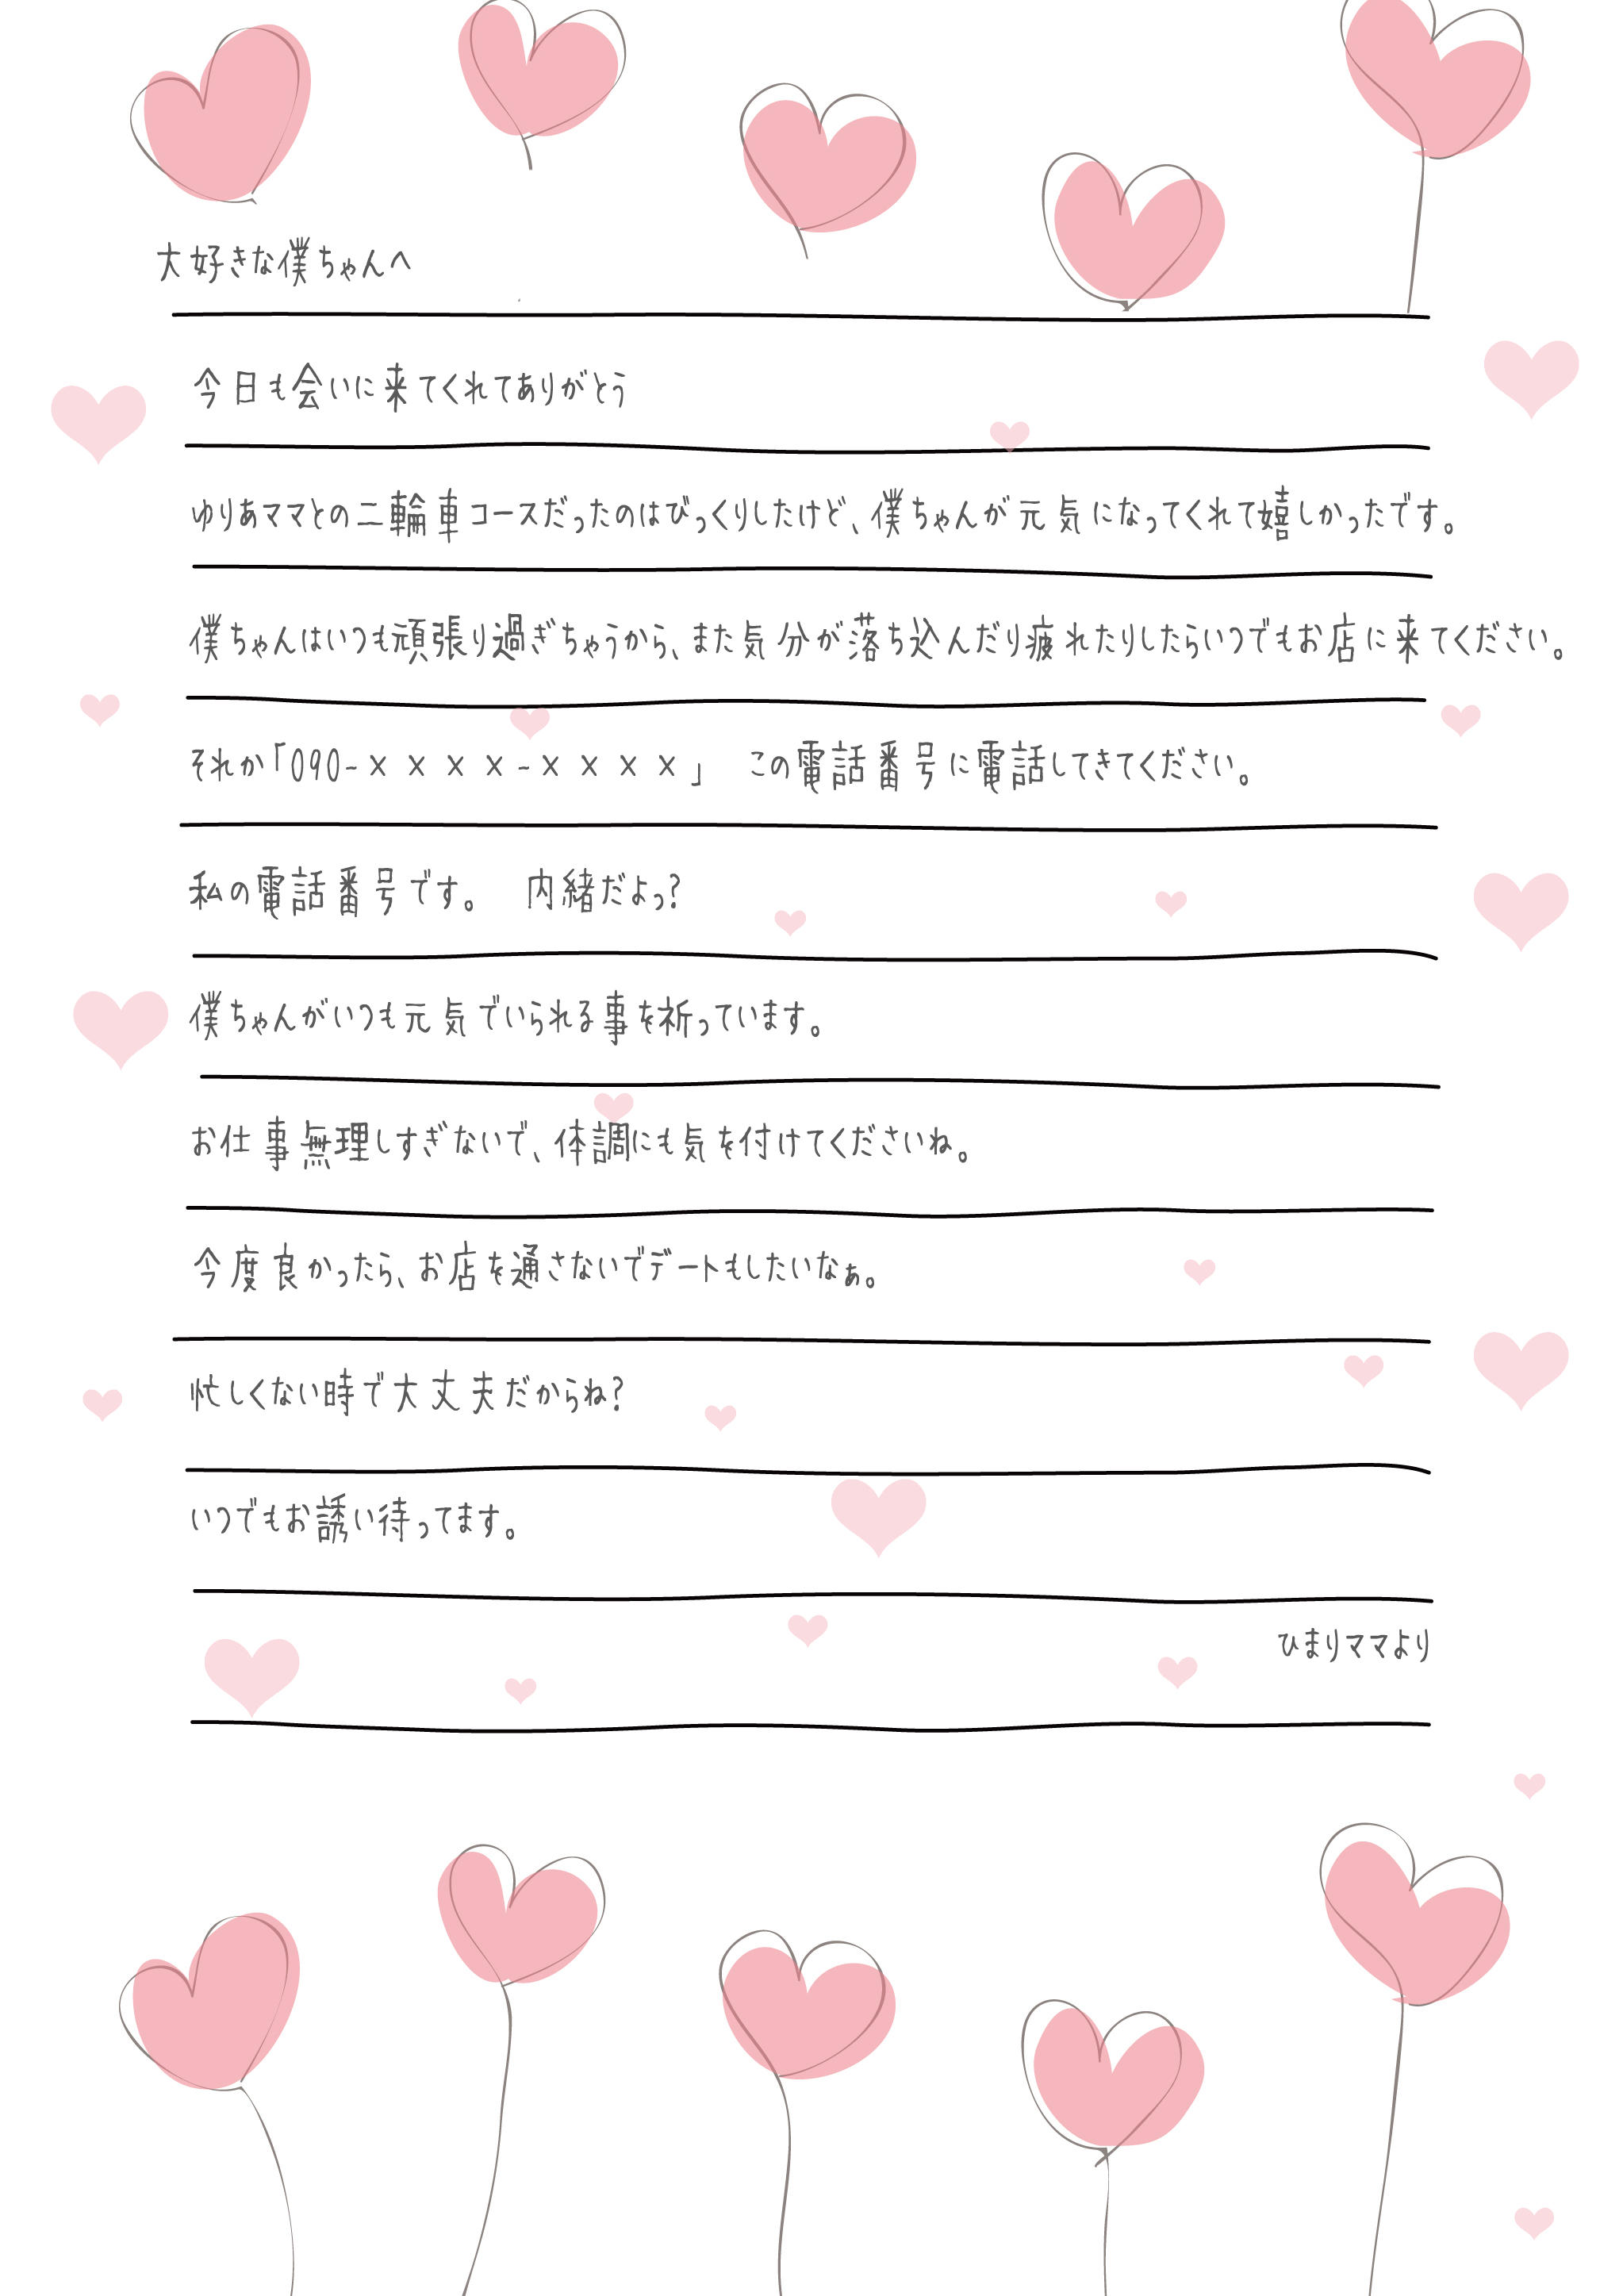 大好きな僕ちゃんへ
今日も会いに来てくれてありがとう
ゆりあママとの二輪車コースだったのはびっくりしたけど、僕ちゃんが元気になってくれて嬉しかったです。
僕ちゃんはいつも頑張り過ぎちゃうから、また気分が落ち込んだり疲れたりしたらいつでもお店に来てください。
それか「090-××××-××××」　この電話番号に電話してきてください。
私の電話番号です。　内緒だよっ?
僕ちゃんがいつも元気でいられる事を祈っています。
お仕事無理しすぎないで、体調にも気を付けてくださいね。
今度良かったら、お店を通さないでデートもしたいなぁ。
忙しくない時で大丈夫だからね?
いつでもお誘い待ってます。
ひまりママより